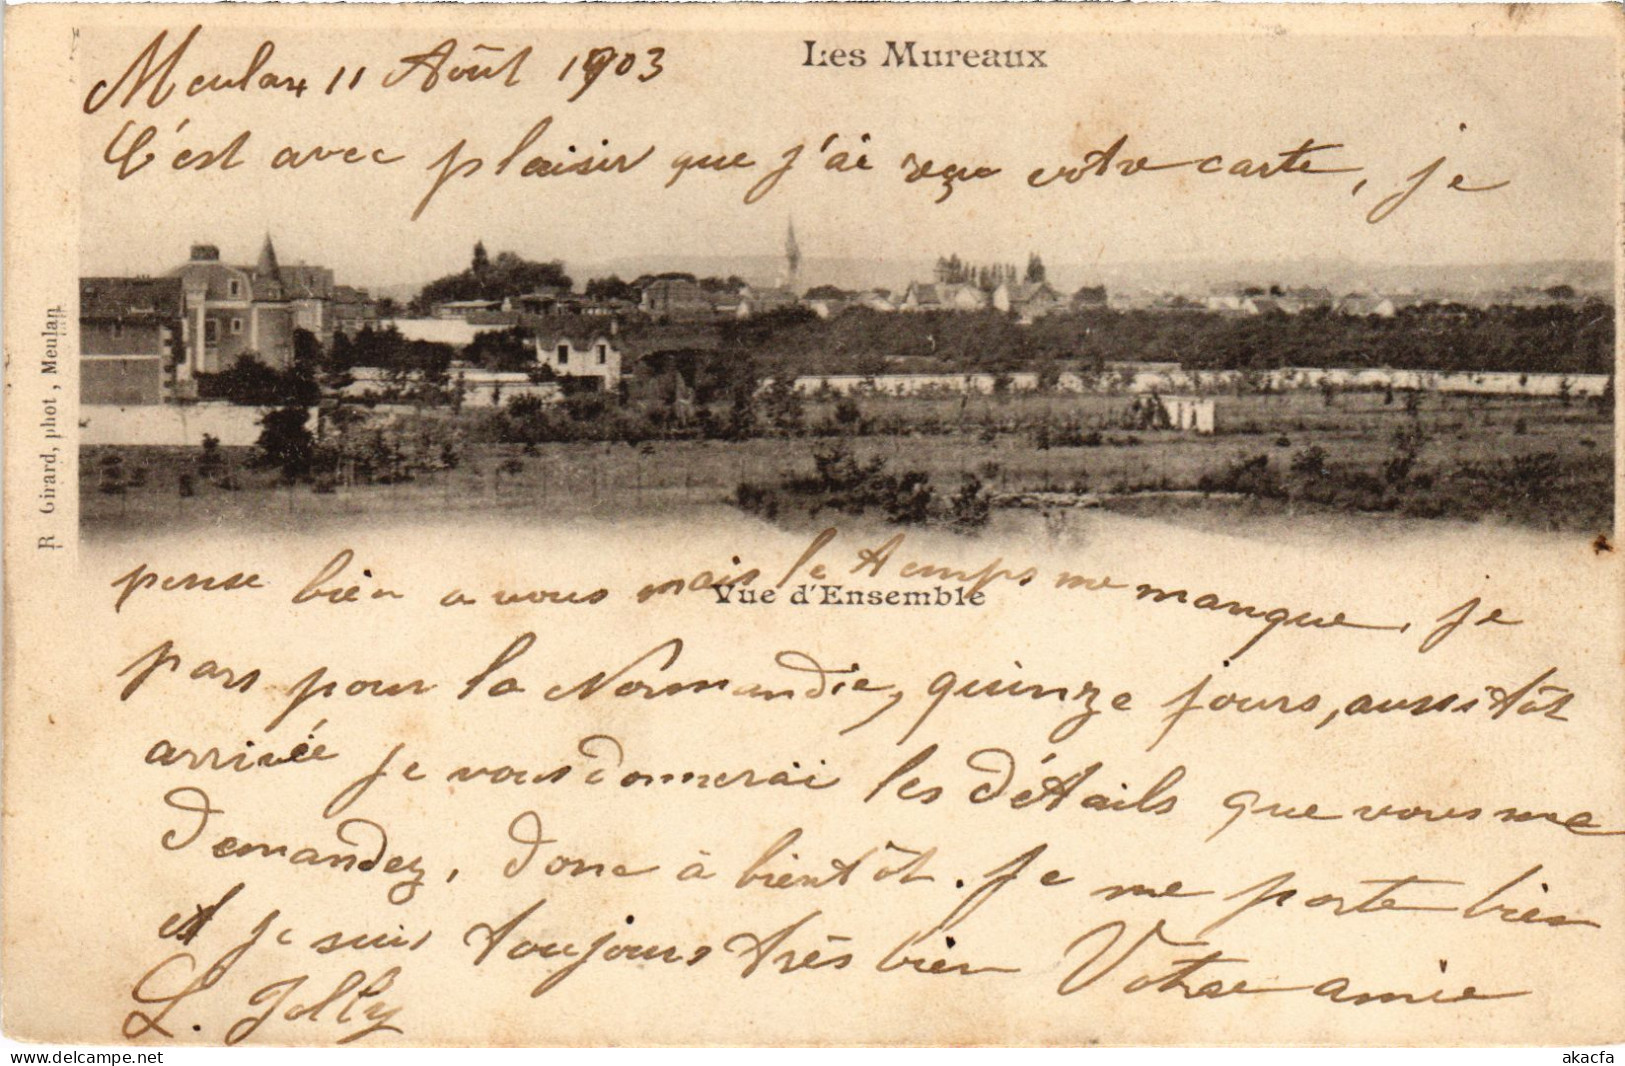 Les Mureaux
Meulan 11 Août 1903
C'est avec plaisir que j'ai reçu votre carte, je
R Girard, phot, Meulan
pense bien a vous mais le temps me manque, je
Vue d'Ensemble
pars pour la Normandie, quinze jours, aussitôt
arrivée je vous donnerai les détails que vous me
demandez, donc à bientôt. Je me porte bien
et je suis toujours très bien Votre amie
L. Jolly
delcampe.net
akacfa